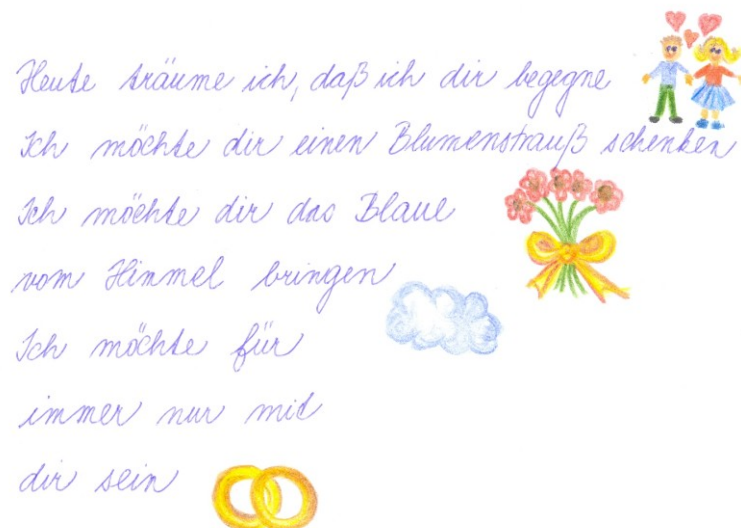 Heute träume ich, daß ich dir begegne
Ich möchte dir einen Blumenstrauß schenken
Ich möchte dir das Blaue
vom Himmel bringen
Ich möchte für
immer nur mit
dir sein